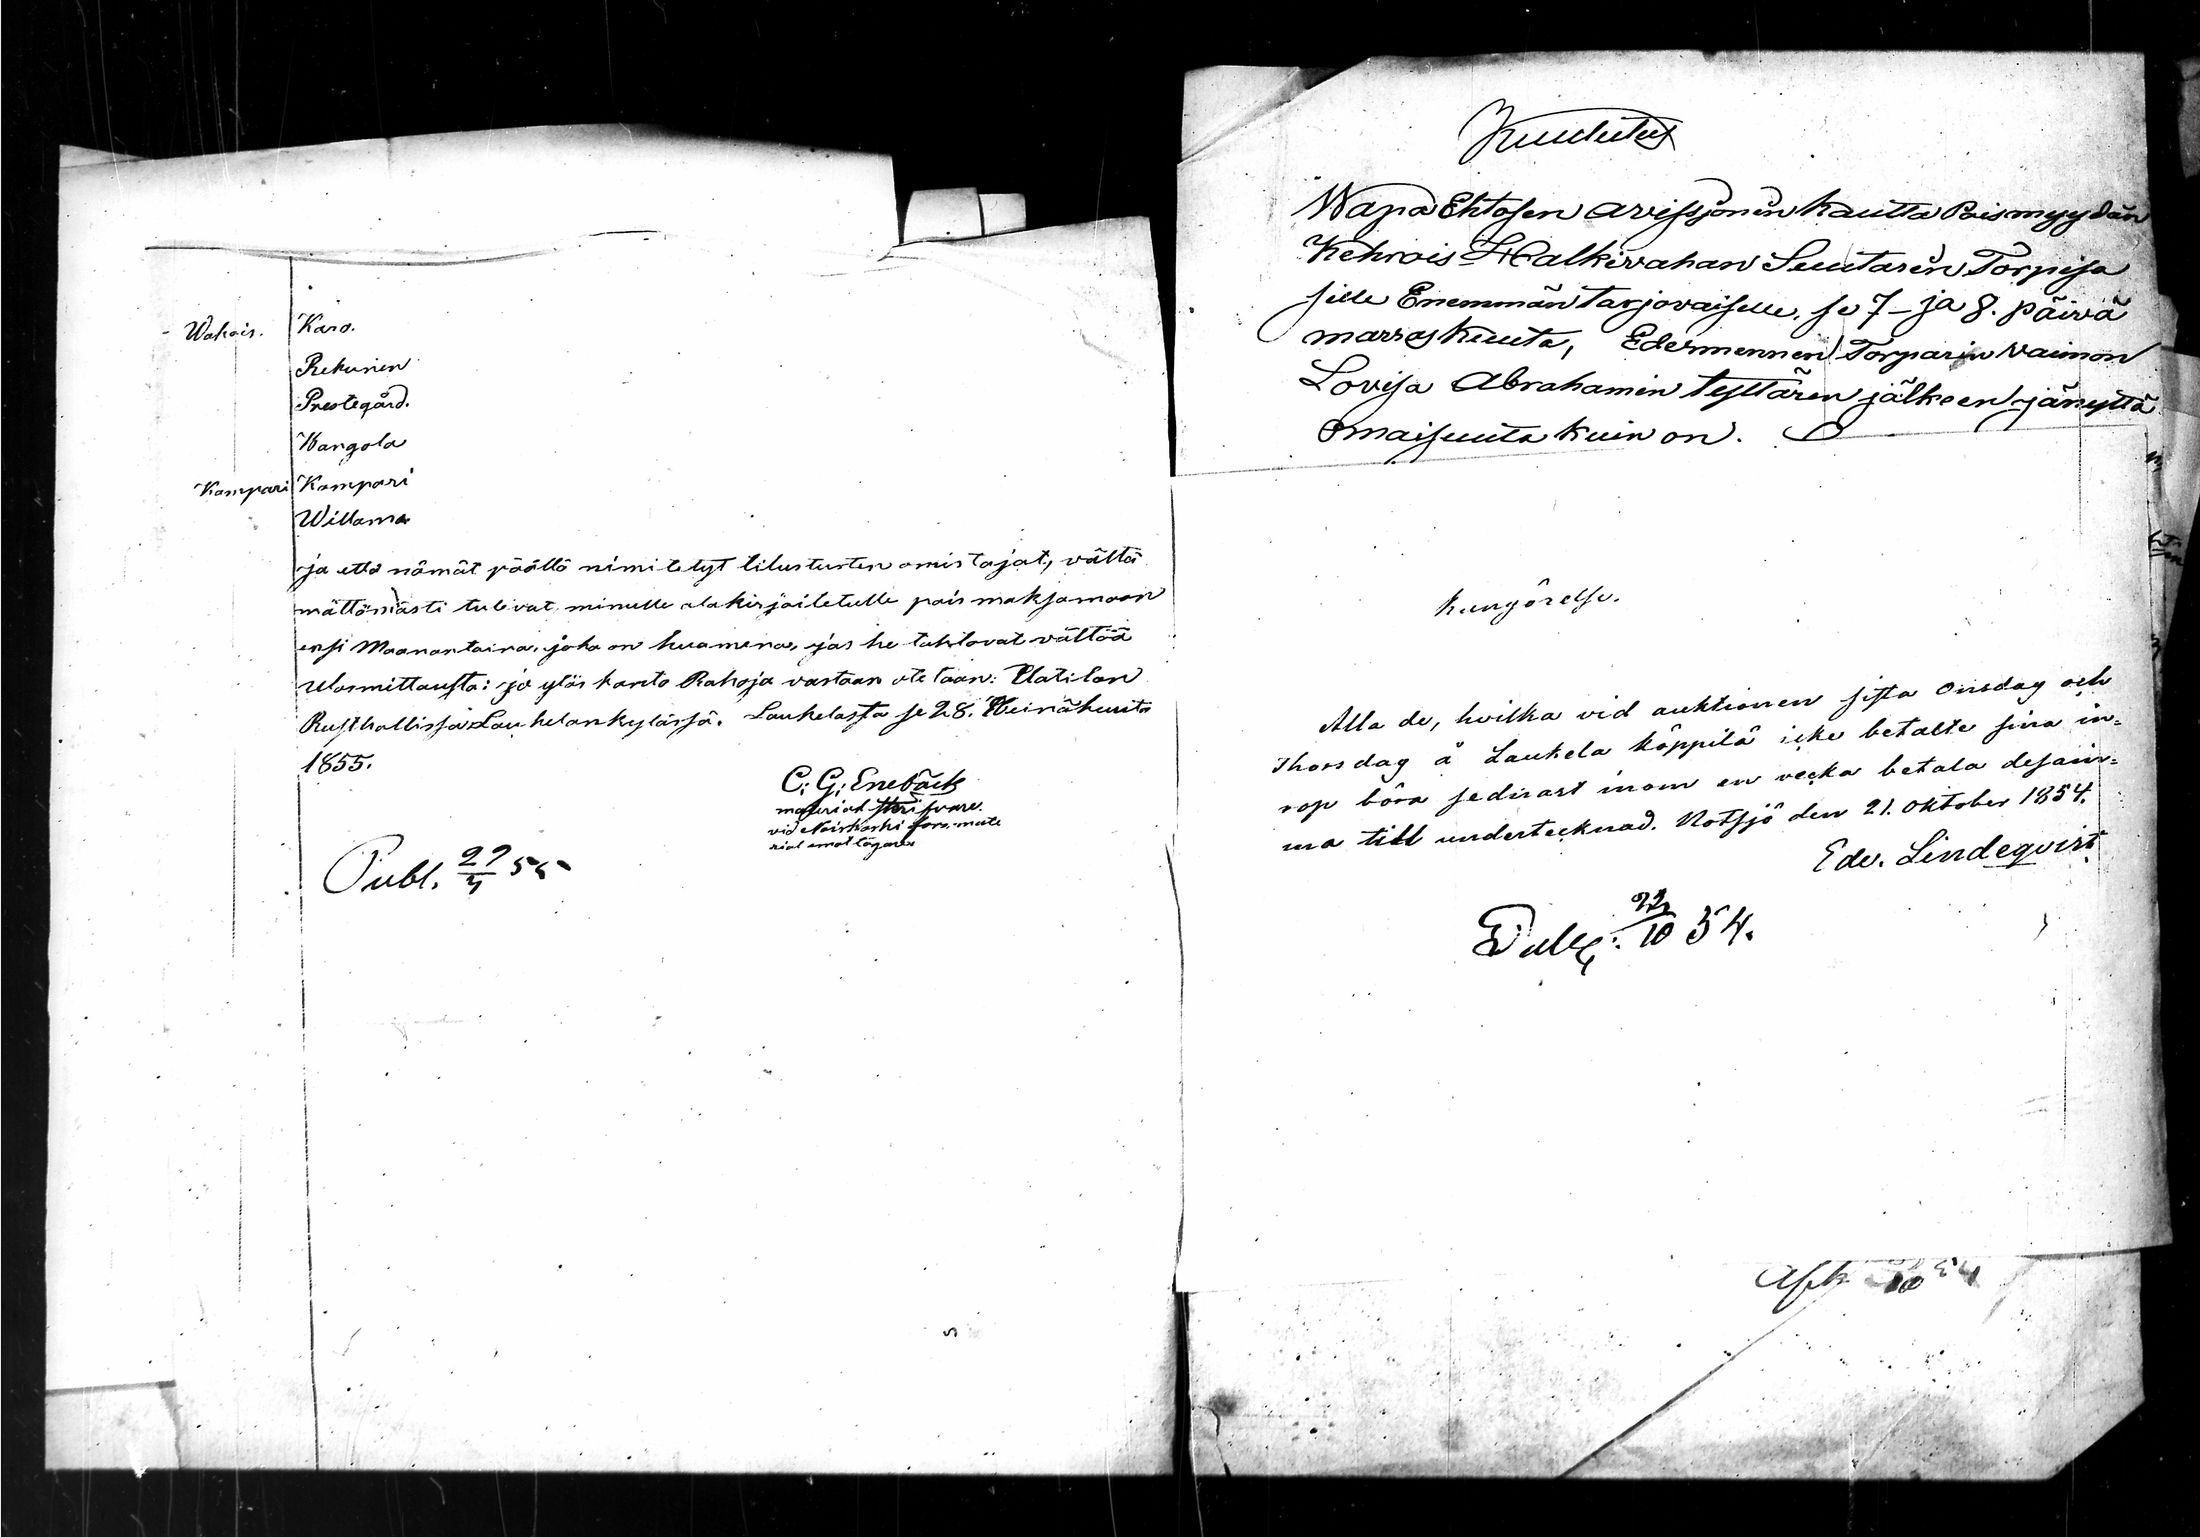 Wahois. Karo.
Rekunen
Prestegård.
Wangola
Kampari Kampari
Willama
ja että nämät päällä nimitetyt tilusturten omistajat, vältä
mättömästi tulevat minulle alakirjoitetulle pois maksamaan
ensi Maanantaina, joka on huamena, jos he tahtovat välttää
Ulosmittausta: ja ylöskanto Rahoja vastaan otetaan: Ulatilan
Rusthollissa Laukelankylässä. Laukelasta se 28. Heinäkuuta
1855.
C: G: Enebäck
material
vid Nuiskoski
Publ. 29/7 55
Kuulutus
Wapa Ehtosen avissjonin kautta Poismyydän
Kehrois Halkivahan Suutarin Torpisa
sille Enemmän tarjovaiselle, se 7 – ja 8. päivä
marraskuuta, Edesmennen Torparin vaimon
Lovisa Abrahamin tyttären jälkeen jänyttä
Omaisuuta kuin on.
kungörelse.
Alla de, hvilka vid auktionen sista onsdag och
Thorsdag å Laukela Käppilä icke betalte sina in=
rop böra sednast inom en vecka betala desam=
ma till undertecknad. Notsjö den 21. oktober 1854.
Edv. Lindeqvist
Publ: 22/10 54.